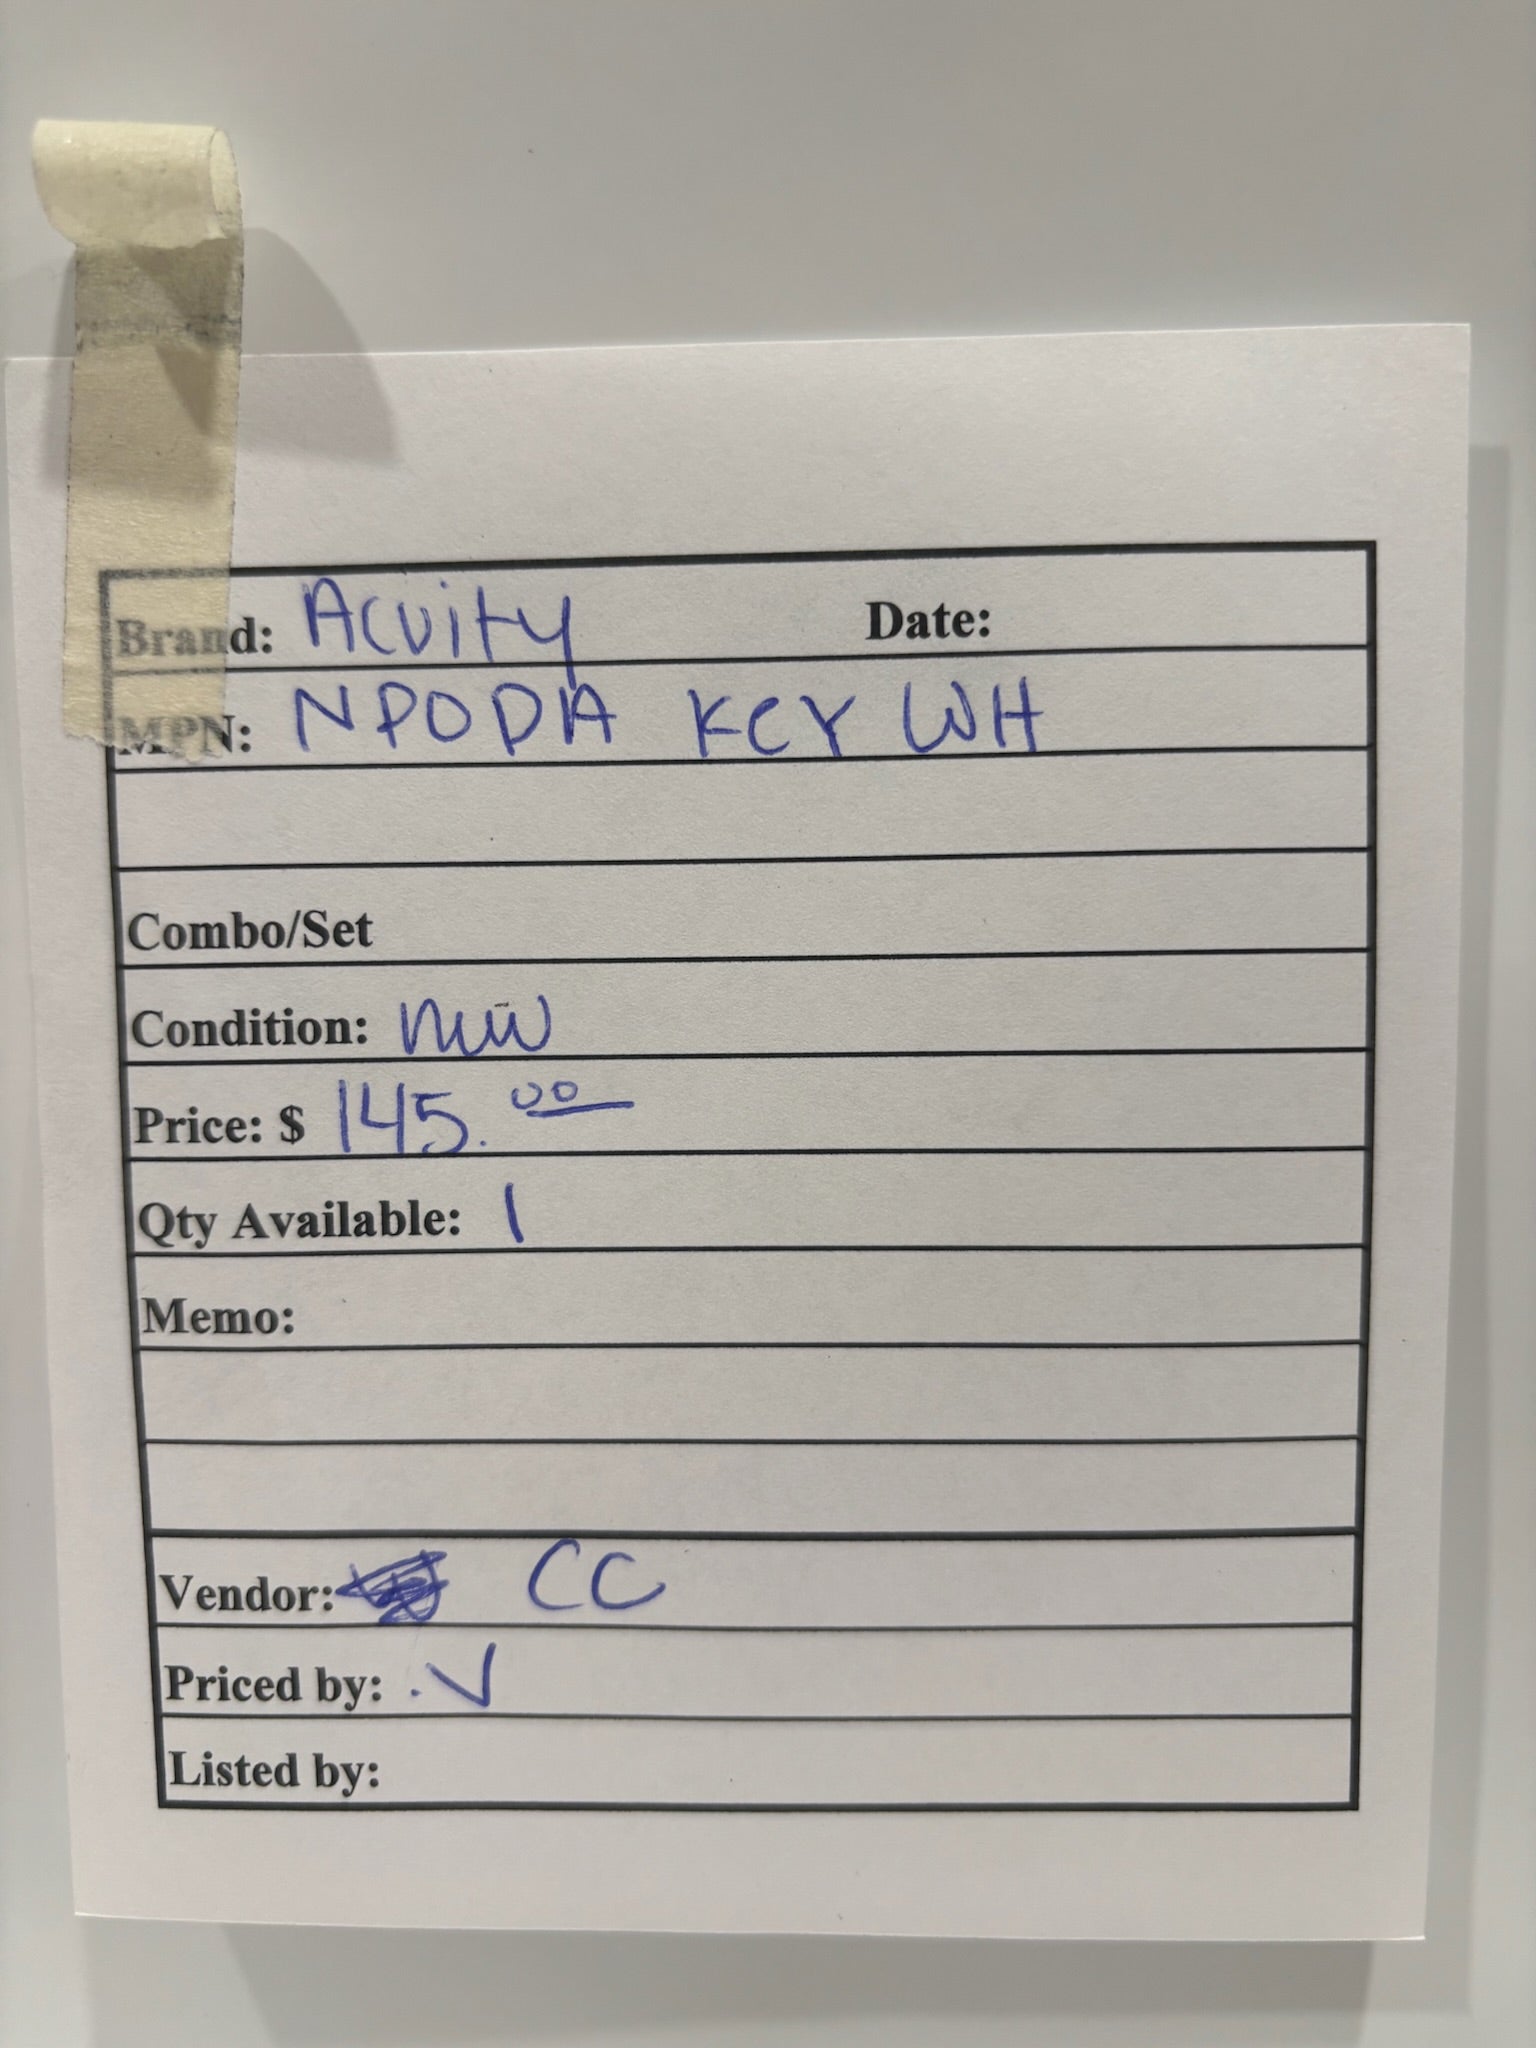 Brand: Acuity Date:
MPN: NPODA KCY WH
Combo/Set
Condition: new
Price: $ 145.00
Qty Available: 1
Memo:
Vendor: CC
Priced by: .V
Listed by: